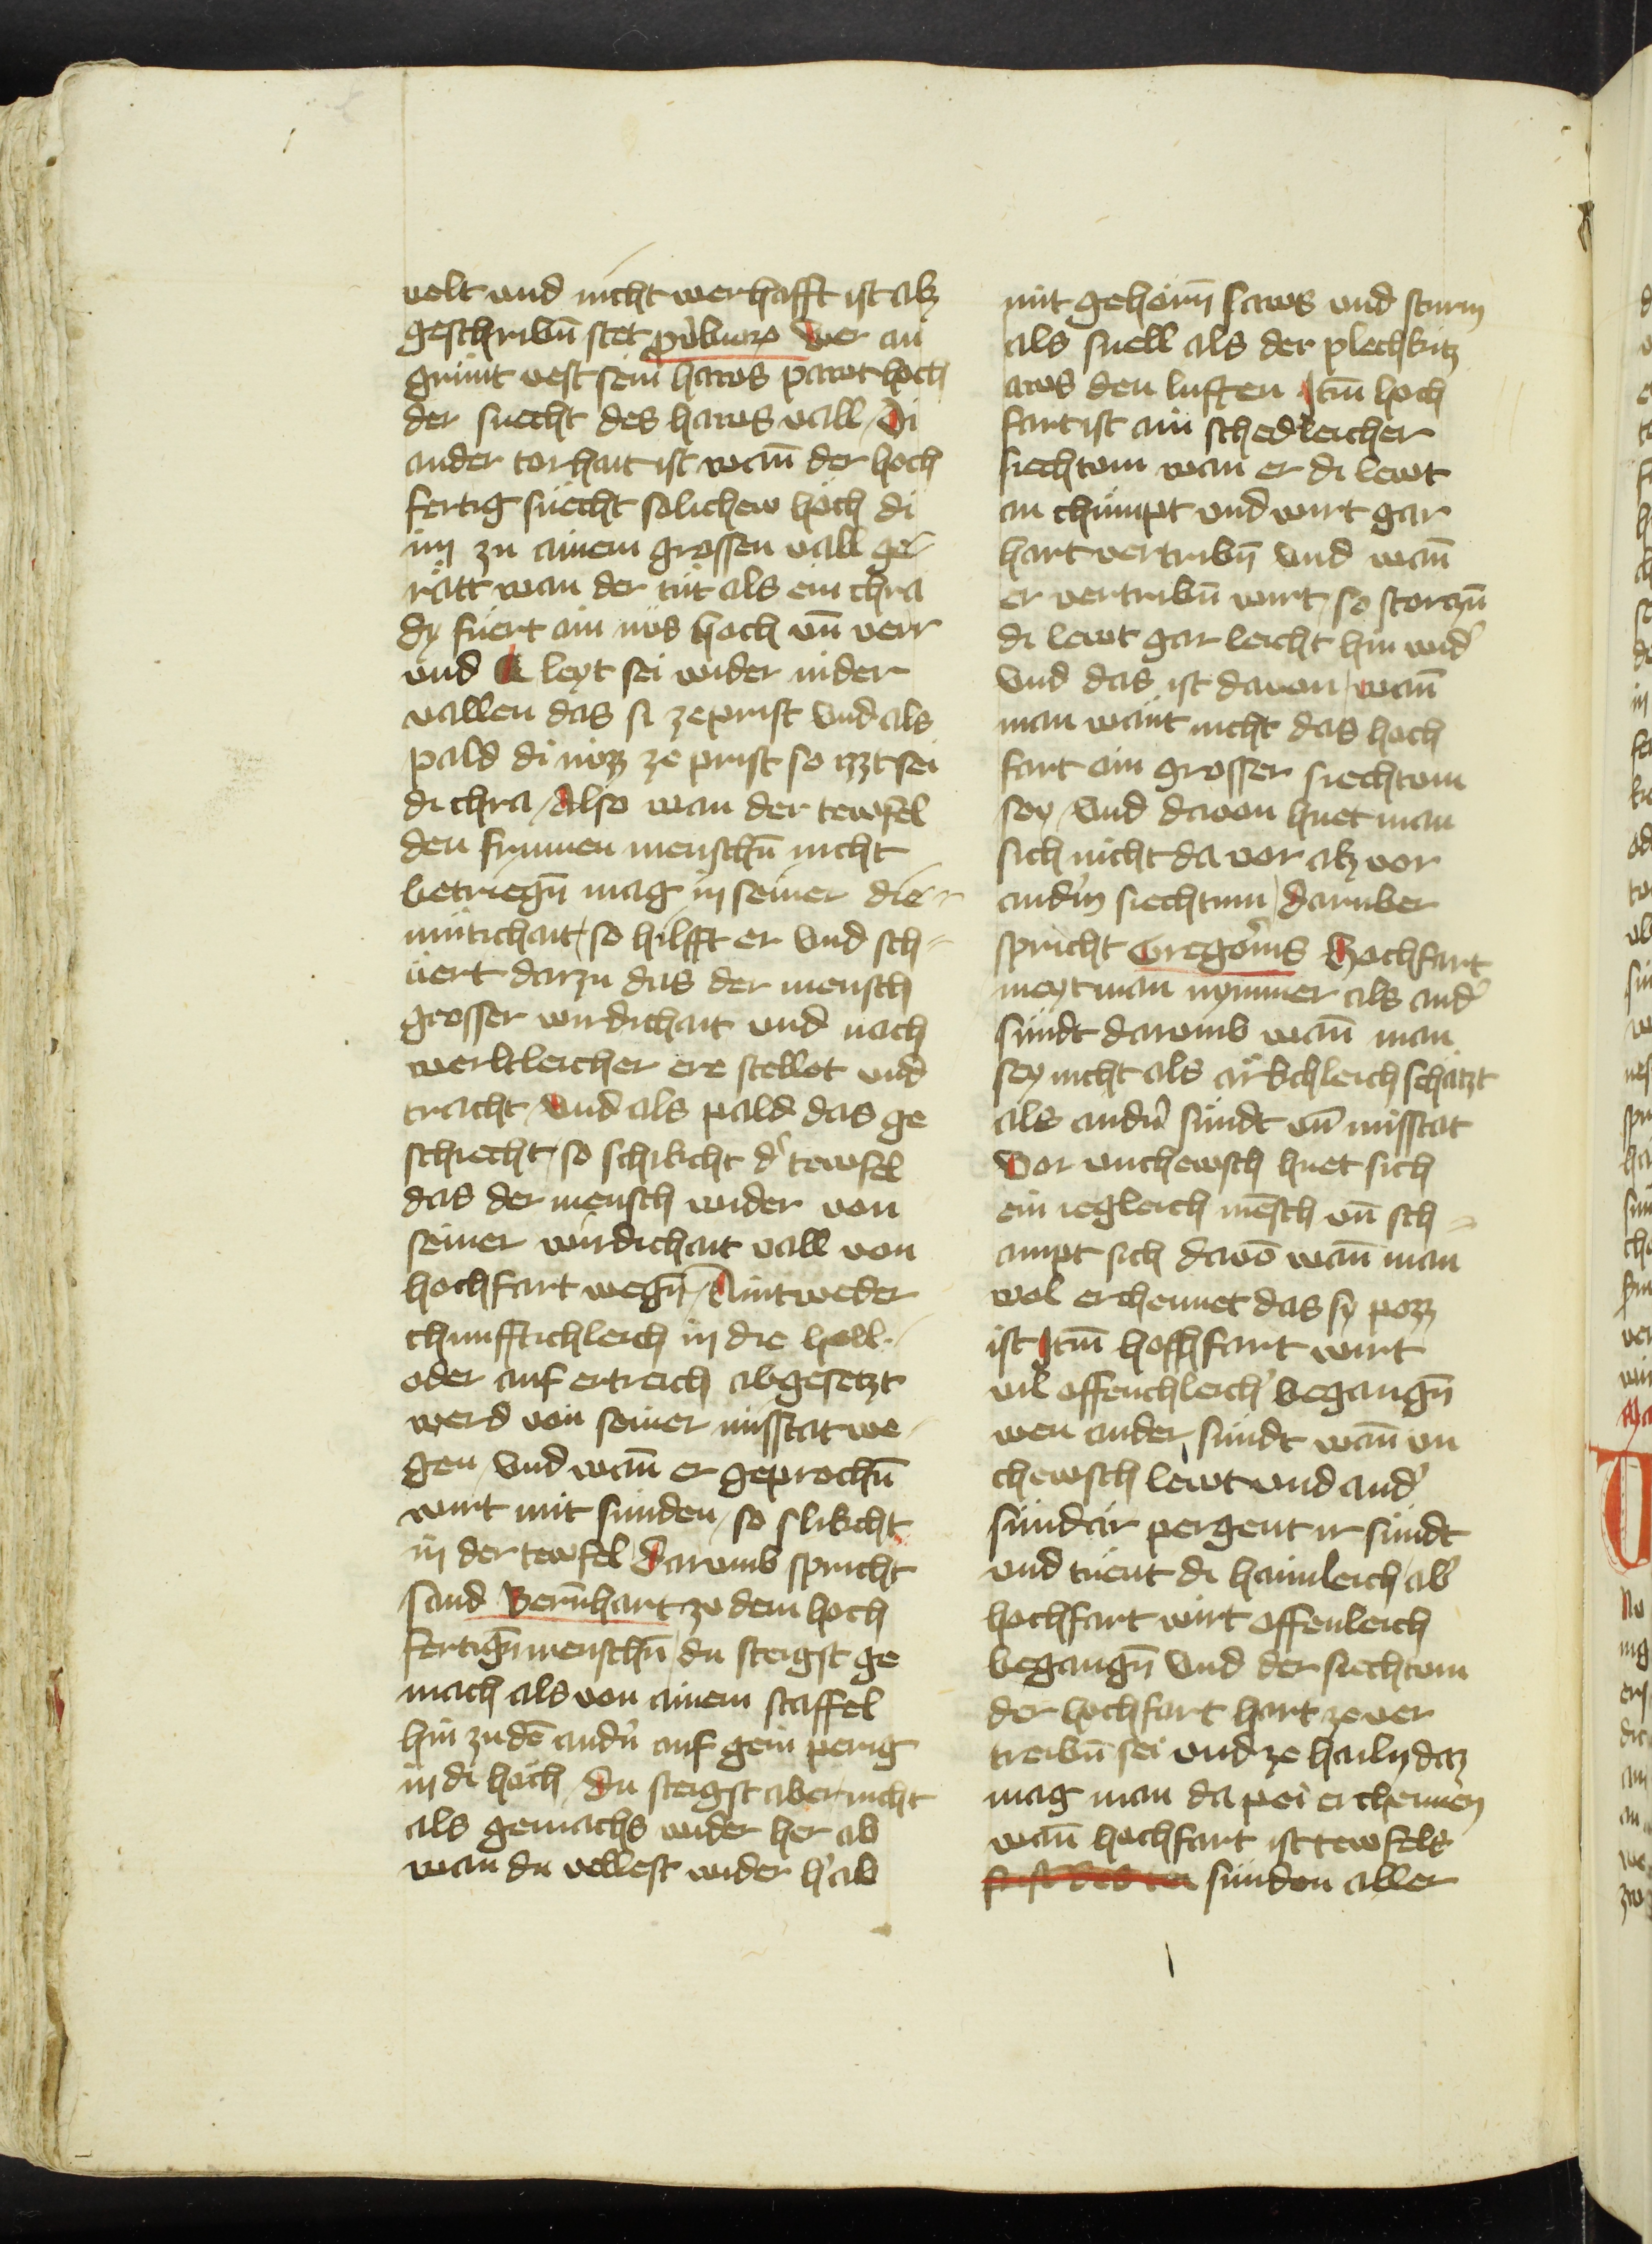 velt vnd nicht werhafft ist alz
geschribn̄ stet prouerbiorum Wer an
grunt vest sein haws pawt hoch
der suecht des haws vall Di
ander torhait ist wann̄ der hoch
fertig suecht solichew hoch di
im zu ainem grossen vall ge-
ratt wan der tut als ein chra
dy fuert ain nus hoch vn̄ verr
vnd leyt sei wider nider
vallen das si zeprist vnd als
pald di nuzz ze prist so izzt sei
di chra Also wan der tewfel
den frummen menschn̄ nicht
betriegn̄ mag in seiner die-
mutichait so hilfft er vnd sch-
uert darzu das der mensch
grosser wirdichait vnd nach
werltleicher ere stellet vnd
tracht Vnd als pald das ge
schiecht so schikcht d' tewfel
das der mensch wider von
seiner wirdichait vall von
hochfart wegn̄ Aintweder
chunfftichleich in die hell
oder auf ertreich abgesetzt
werd von seiner misstat we-
gen Vnd wann̄ er geprochn̄
wirt mit sunden so slikcht
in der tewfel Darumb spricht
sand Bern̄hart zu dem hoch
fertign̄ menschn̄ du steigst ge
mach als von ainem staffel
hin zu dē andn̄ auf gein perig
in di hoch du steigst aber nicht
als gemachs wider her ab
wan du vellest wider h'ab
mit gehoirn̄ saws vnd sturm
als snell als der plechkitz
aws den luften Itm̄ hoch
fart ist ain schedleicher
siechtum wan er di lewt
an chumpt vnd wirt gar
hart vertribn̄ vnd wann̄
er vertribn̄ wirt so storczn̄
di lewt gar leicht hin wid'
Vnd das ist dauon wann̄
man waint nicht das hoch
fart ain grosser siechtum
sey Vnd dauon huet man
sich nicht da vor alz vor
andm̄ siechtum daruber
spricht Gregorius Hochfart
meyt man nymmer als and'
sundt darumb wann̄ man
sey nicht als ärkchleich schätzt
als andn̄ sundt vn̄ misstat
Vor vnchewsch huet sich
ein iegleich mēsch vn̄ sch-
ampt sich dauō wann̄ man
wol erchennet das sy pozz
ist Itm̄ hoffhfart wirt
vil offenchleich' begangn̄
wen ander sundt wann̄ vn
chewsch lewt vnd and'
sundär pergent ir sundt
vnd tuent di haimleich ab'
hochfart wirt offenleich
begangn̄ Vnd der siechtum
der hochfart hart ze ver
treibn̄ sei vnd ze hailn daz
mag man da pei erchennen
wann̄ hochfart ist tewfels
sundon aller